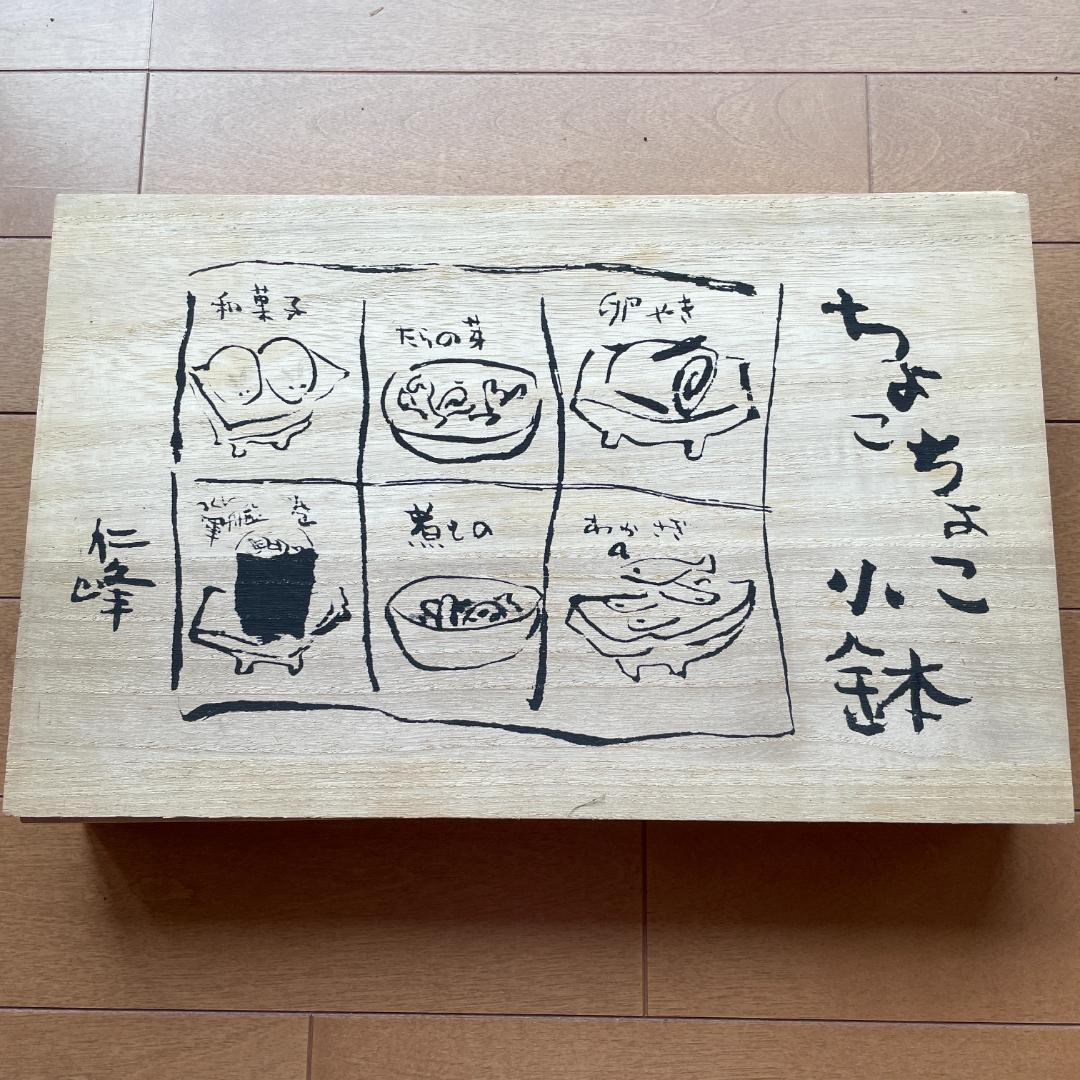 ちょこちょこ
小鉢
卵やき
たらの芽
和菓子
わかさぎ
煮もの
仁峰